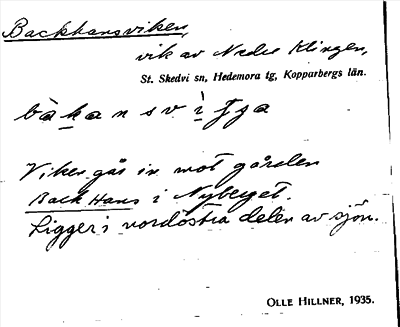 Backhansviken,
vik av Nedre Klingen,
St. Skedvi sn, Hedemora tg, Kopparbergs län.
Viken går in mot gården
Back Hans i Nyberget.
Ligger i nordöstra delen av sjön.
OLLE HILLNER, 1935.